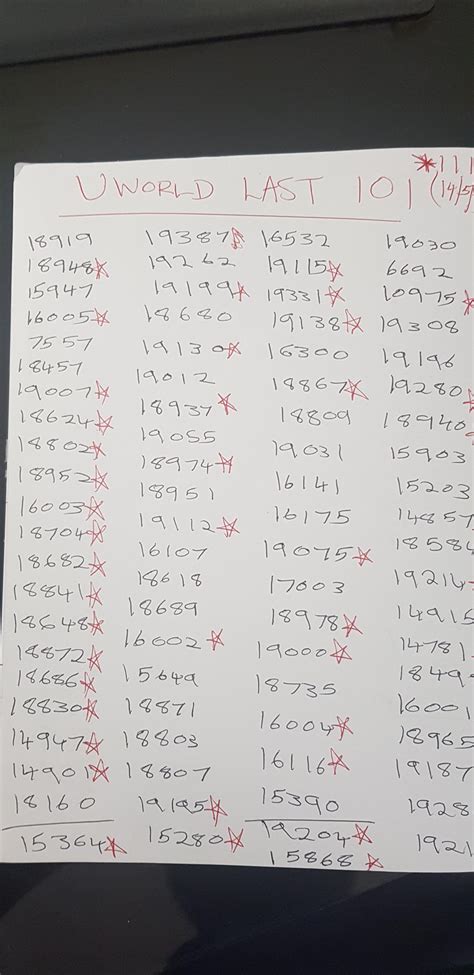 *111
UWORLD LAST 101 (14/5
18919
18948☆
15947
16005☆
7557
18457
19007☆
18624☆
18802☆
18952☆
16003☆
18704☆
18682☆
18841☆
18648☆
18872☆
18686☆
18830☆
14947☆
14901☆
18160
15364☆
19387☆
19262
19199☆
18680
19130☆
19012
18937☆
19055
18974☆
18951
19112☆
16107
18618
18689
16002☆
15649
18871
18803
18807
19195☆
15280☆
16532
19115☆
19331☆
19138☆
16300
18867☆
18809
19031
16141
16175
19075☆
17003
18978☆
19000☆
18735
16004☆
16116☆
15390
19204☆
15868☆
19030
6692
10975☆
19308
19196
19280☆
18940
15903
15203
14857
18584
19214☆
14915
14781
1849
16001
18965
19187
1928
1921